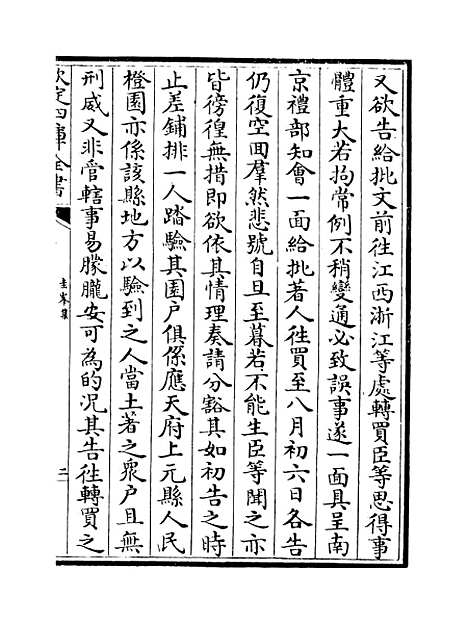 又欲告給批文前徃江西浙江等處轉買臣等思得事
體重大若拘常例不稍變通必致誤事遂一面具呈南
京禮部知會一面給批著人徃買至八月初六日各告
仍復空回羣然悲號自旦至暮若不能生臣等聞之亦
皆徬徨無措即欲依其情理奏請分豁其如初告之時
止差鋪排一人踏驗其園户俱係應天府上元縣人民
橙園亦係該縣地方以驗到之人當土著之衆户且無
刑威又非管轄事易朦朧安可為的况其告徃轉買之
欽定四庫全書
圭峯集
二